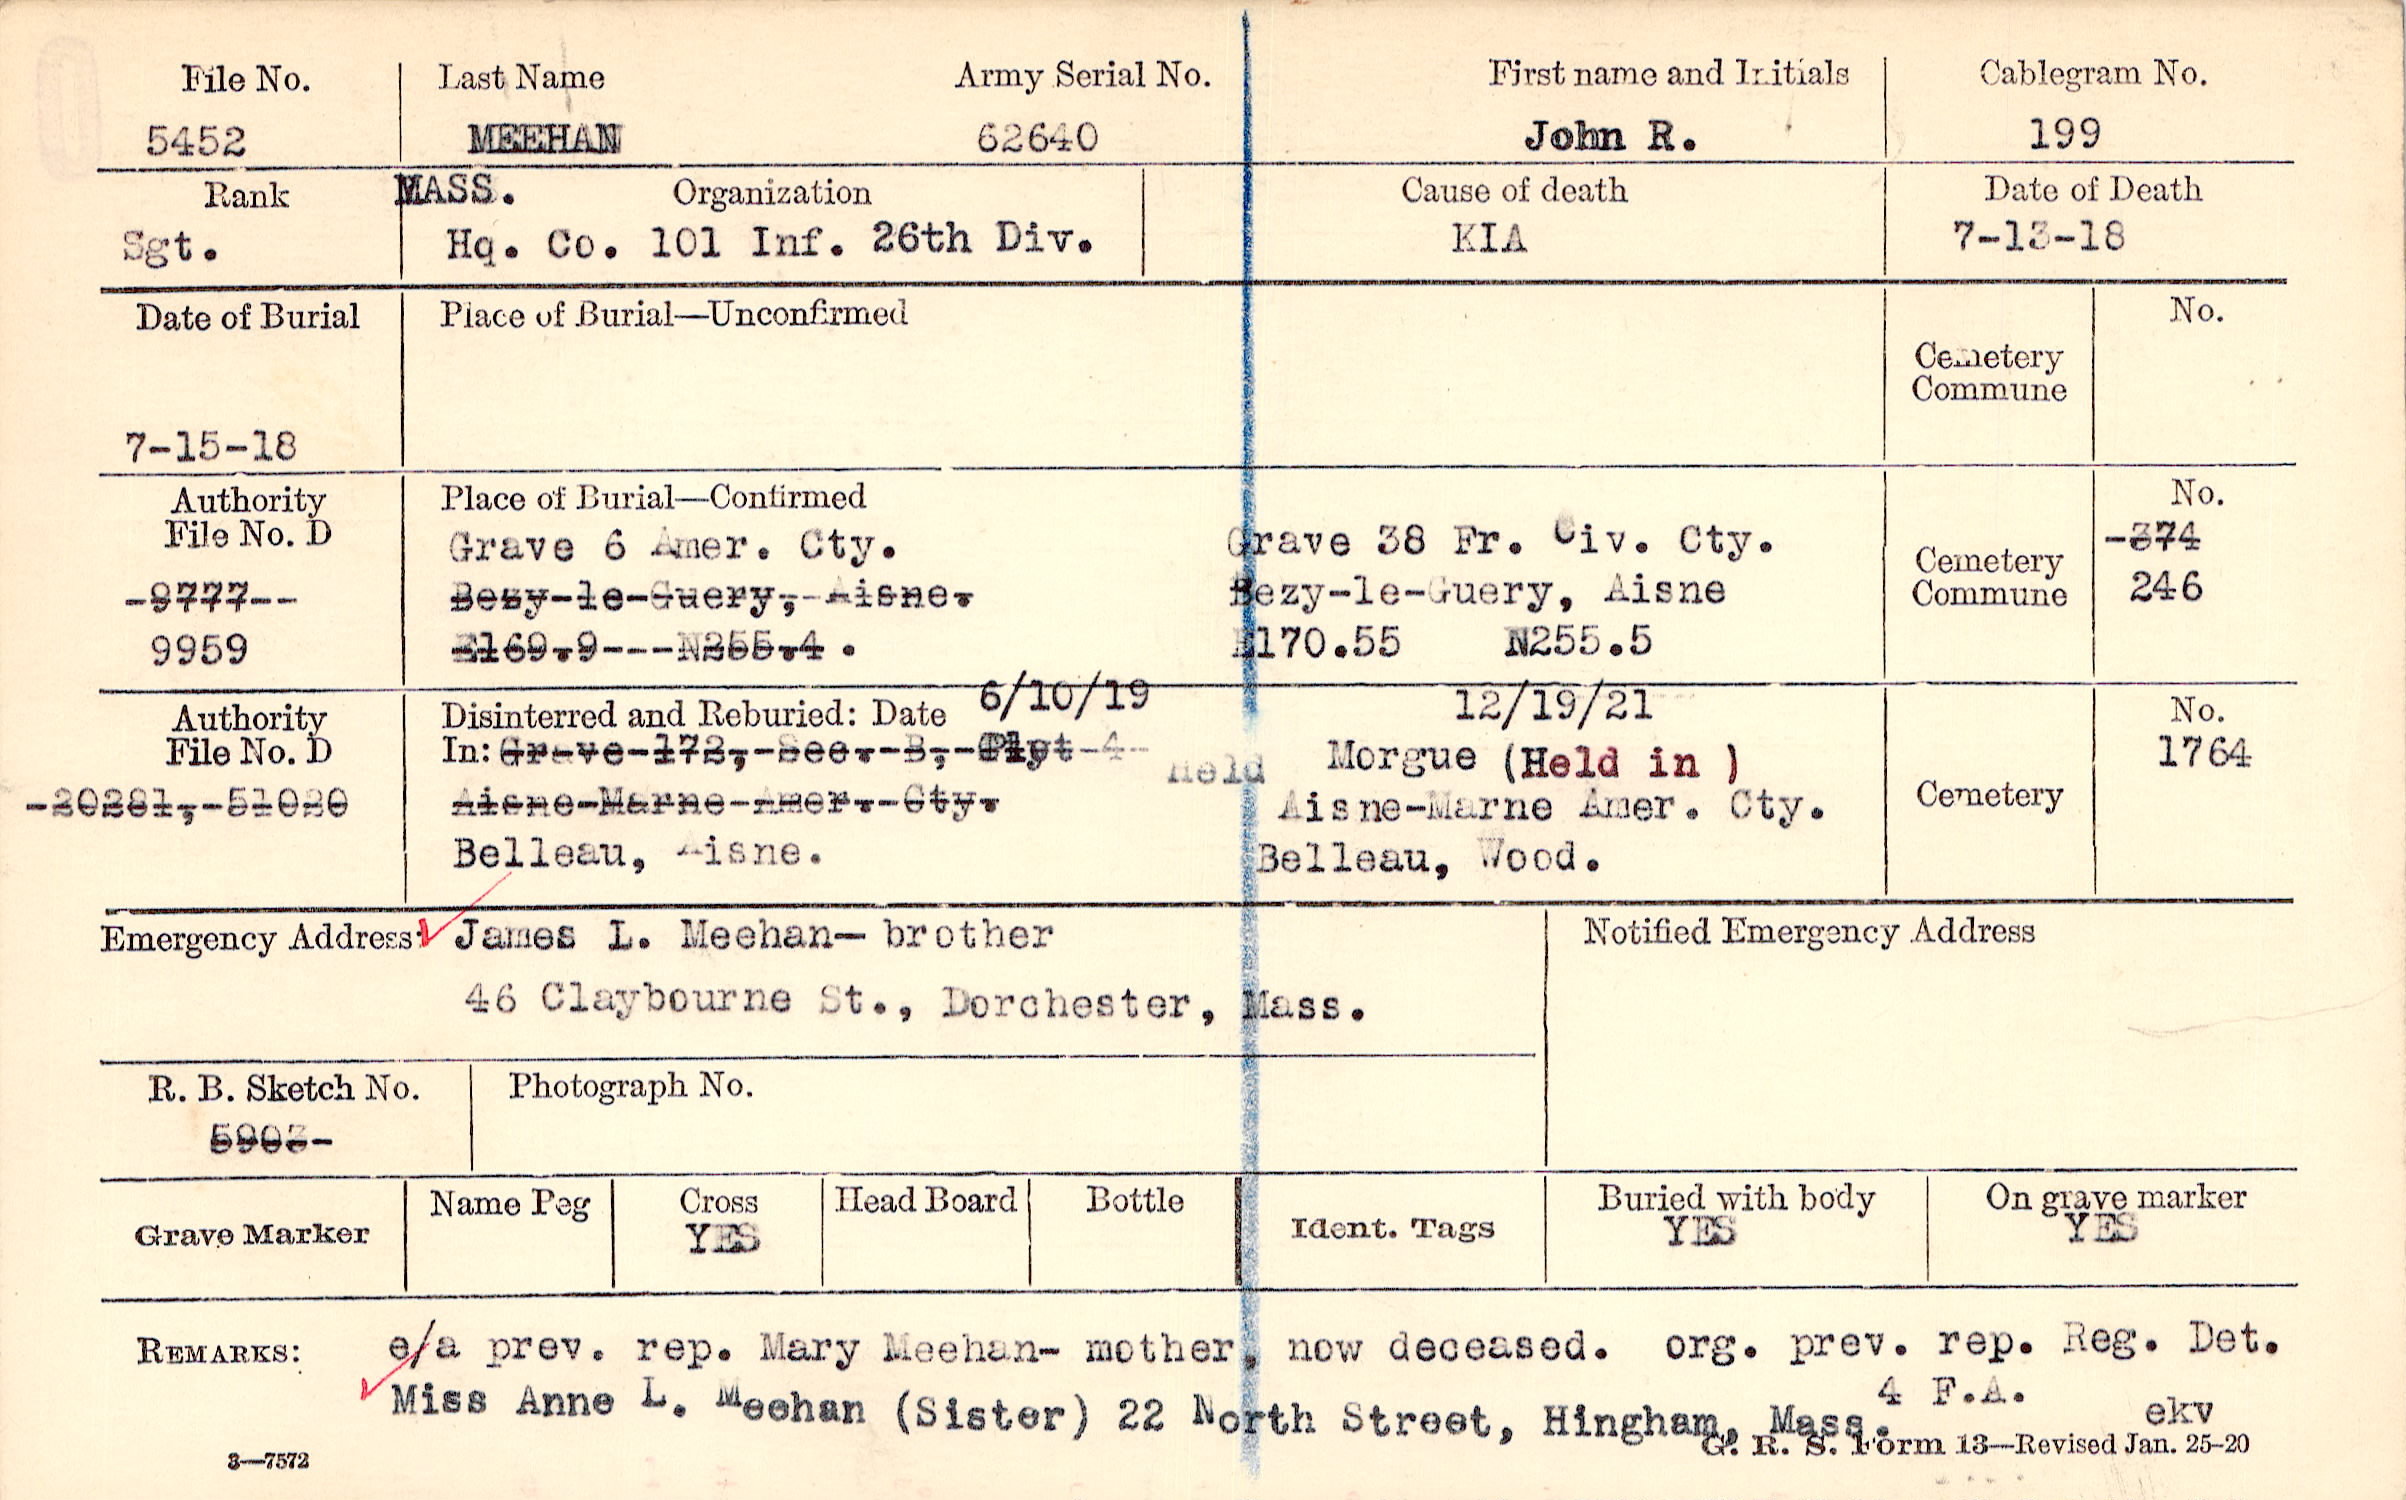 File No. Last Name Army Serial No. First name and Initials Cablegram No.
5452 MEEHAN 62640 John R. 199
Rank MASS. Organization Cause of death Date of Death
Sgt. Hq. Co. 101 Inf. 26th Div. KIA 7-13-18
Date of Burial Place of Burial—Unconfirmed No.
Cemetery
Commune
7-15-18
Authority Place of Burial—Confirmed No.
File No. D Grave 6 Amer. Cty. Grave 38 Fr. Civ. Cty. -374
-9777-- Bezy-le-Guery, Aisne. Bezy-le-Guery, Aisne Cemetery Commune 246
9959 E169.9---N255.4. E170.55 N255.5
Authority Disinterred and Reburied: Date 6/10/19 12/19/21 No.
File No. D In: Grave 172, Sec. B, Plot 4 Held Morgue (Held in ) 1764
-20281,-51020 Aisne-Marne Amer. Cty. Aisne-Marne Amer. Cty. Cemetery
Belleau, Aisne. Belleau, Wood.
Emergency Address: James L. Meehan- brother Notified Emergency Address
46 Claybourne St., Dorchester, Mass.
R. B. Sketch No. Photograph No.
5903-
Name Peg Cross Head Board Bottle Buried with body On grave marker
Grave Marker YES Ident. Tags YES YES
REMARKS: e/a prev. rep. Mary Meehan- mother, now deceased. org. prev. rep. Reg. Det.
4 F.A.
Miss Anne L. Meehan (Sister) 22 North Street, Hingham, Mass. ekv
3—7572 G. R. S. Form 13—Revised Jan. 25-20